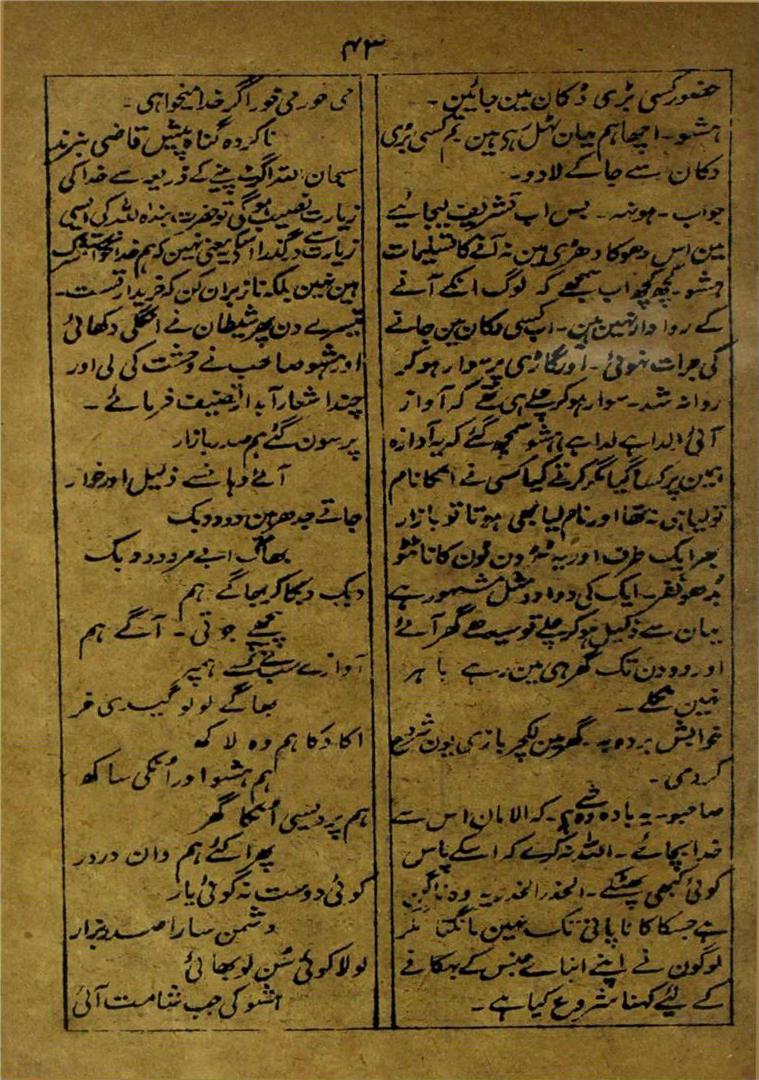 ۴۳
حضور کسی بڑی دُکان مین جائین ۔
ہشو ۔ اچھا ہم میان ٹہل رہے ہین تم کسی بڑی
دکان سے جا کے لا دو ۔
جواب ۔ ہونہہ ۔ بس اب تشریف لیجائیے
مین اس دھوکا دھڑی مین نہ آنے کا تسلیمات
ہشو ۔ کچھ کچھ اب سمجھے کہ لوگ انکے آنے
کے روادار نہین ہین ۔ اب کسی دکان مین جانے
کی جرات نہوئی ۔ اور گاڑی پر سوار ہو کر
روانہ شد ۔ سوار ہو کر چلے ہی تھے کہ آواز
آئی لدا ہے لدا ہے ہشو سمجھ گئے کہ یہ آوازہ
ہمین پر کسا گیا مگر کرتے کیا کسی نے انکا نام
تو لیا ہی نہ تھا اور نام لیا بھی ہوتا تو بازار
بھر ایک طرف اور یہ
بُدھو نفر ۔ ایک کی دوا دو مثل مشہور ہے
یہان سے ذلیل ہو کر چلے تو سیدھے گھر آئے
اور دو دن تک گھر ہی مین رہے باہر
نہین نکلے ۔
خوابش بردہ بہ ۔ گھر مین لکچر بازی یون شروع
کردی ۔
صاحبو ۔ یہ بادہ وہ شے ہے ۔ کہ الامان اس سے
خدا بچائے ۔ اللہ نہ کرے کہ اسکے پاس
کوئی کبھی پھٹکے ۔ الحذر الحذر یہ وہ ناگن
ہے جسکا کاٹا پانی تک نہین مانگتا مگر
لوگون نے اپنے ابنائے جنس کے بہکانے
کے لیئے کہنا شروع کیا ہے ۔
می خور می خور اگر خدا میخواہی ۔
ناکردہ گناہ پیش قاضی نبرند
سبحان اللہ اگر پینے کے ذریعہ سے خدا کی
زیارت نصیب ہوگی تو حضرت بندہ اللہ کی ایسی
زیارت سے درگذرا اسکے یعنی نہین کہ ہم خدانخواستہ
ہین نہین بلکہ ناز بران کن کہ خریدار تست ۔
تیسرے دن پھر شیطان نے انگلی دکھائی
اور ہشو صاحب نے وحشت کی لی اور
چند اشعار آبدار تصنیف فرمائے ۔
پرسون گئے ہم صدر بازار
آئے وہانسے ذلیل اور خوار
جاتے جدھر ہین دو دو بک
بھاگ ابے مردود دبک
دبک دبکا کر بھاگے ہم
پیچھے جوتی ۔ آگے ہم
آوازے سب نے کسے ہمپر
بھاگے لولو گیدی خر
اکا دکا ہم وہ لاکھ
ہم ہشو اور اُنکی ساکھ
ہم پردیسی اُنکا گھر
پھرا کئے ہم وان دردر
کوئی دوست نہ کوئی یار
دشمن سارا صدر بازار
لولا کوئی سُن لو بھائی
ہشو کی جب شامت آئی